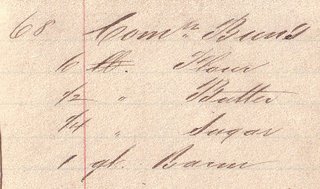 68 Comn Buns
6 lb. Flour
1/2 " Butter
3/4 " Sugar
1 qt. Barm